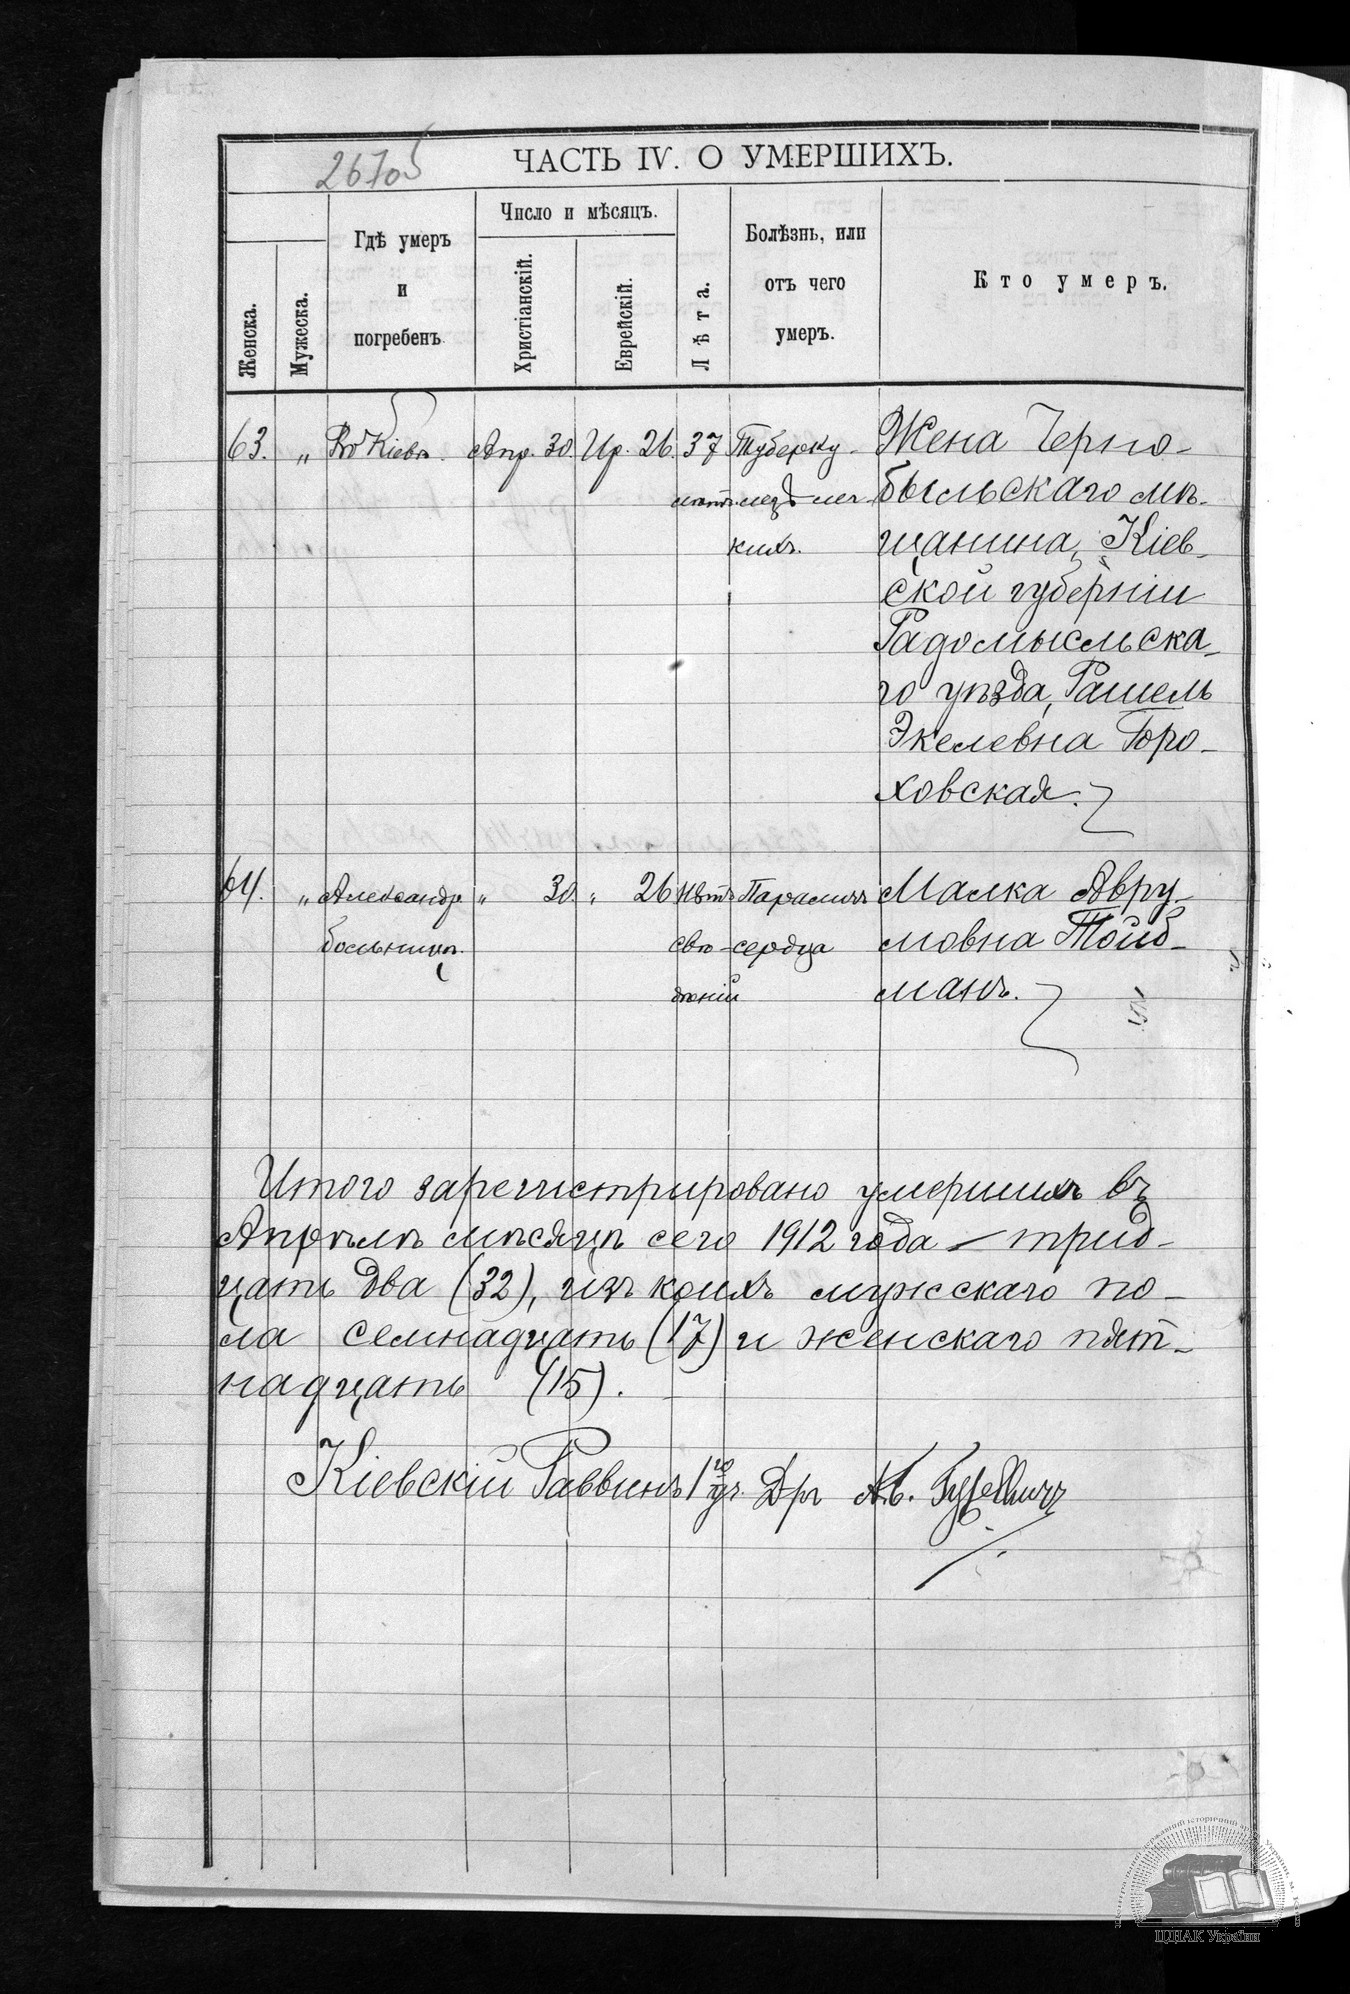 26705
ЧАСТЬ IV. О УМЕРШИХЪ.
Женска.
Мужеска.
Гдѣ умеръ
и
погребенъ
Число и мѣсяцъ.
Христіанскій.
Еврейскій.
Лѣта.
Болѣзнь, или
отъ чего
умеръ.
Кто умеръ.
63. „ Въ Кіевѣ. Апр. 30. Ир. 26. 37 Туберку- Жена Черно-
лѣтъ лезъ лег- быльскаго мѣ-
кихъ. щанина, Кіев-
ской губерніи
Радомысльска-
го уѣзда, Рашель
Экелевна Горо-
ховская.
64. „ Александр. „ 30. „ 26 Нѣтъ Параличъ Малка Авру-
больницѣ. свѣ- сердца мовна Тойб-
дѣній манъ.
Итого зарегистрировано умершихъ въ
Апрѣлѣ мѣсяцѣ сего 1912 года — трид-
цать два (32), изъ коихъ мужскаго по-
ла семнадцать (17) и женскаго пят-
надцать (15).
Кіевскій Раввинъ 1го уч. Д-ръ Аб. Гуревичъ
ЦДІАК України